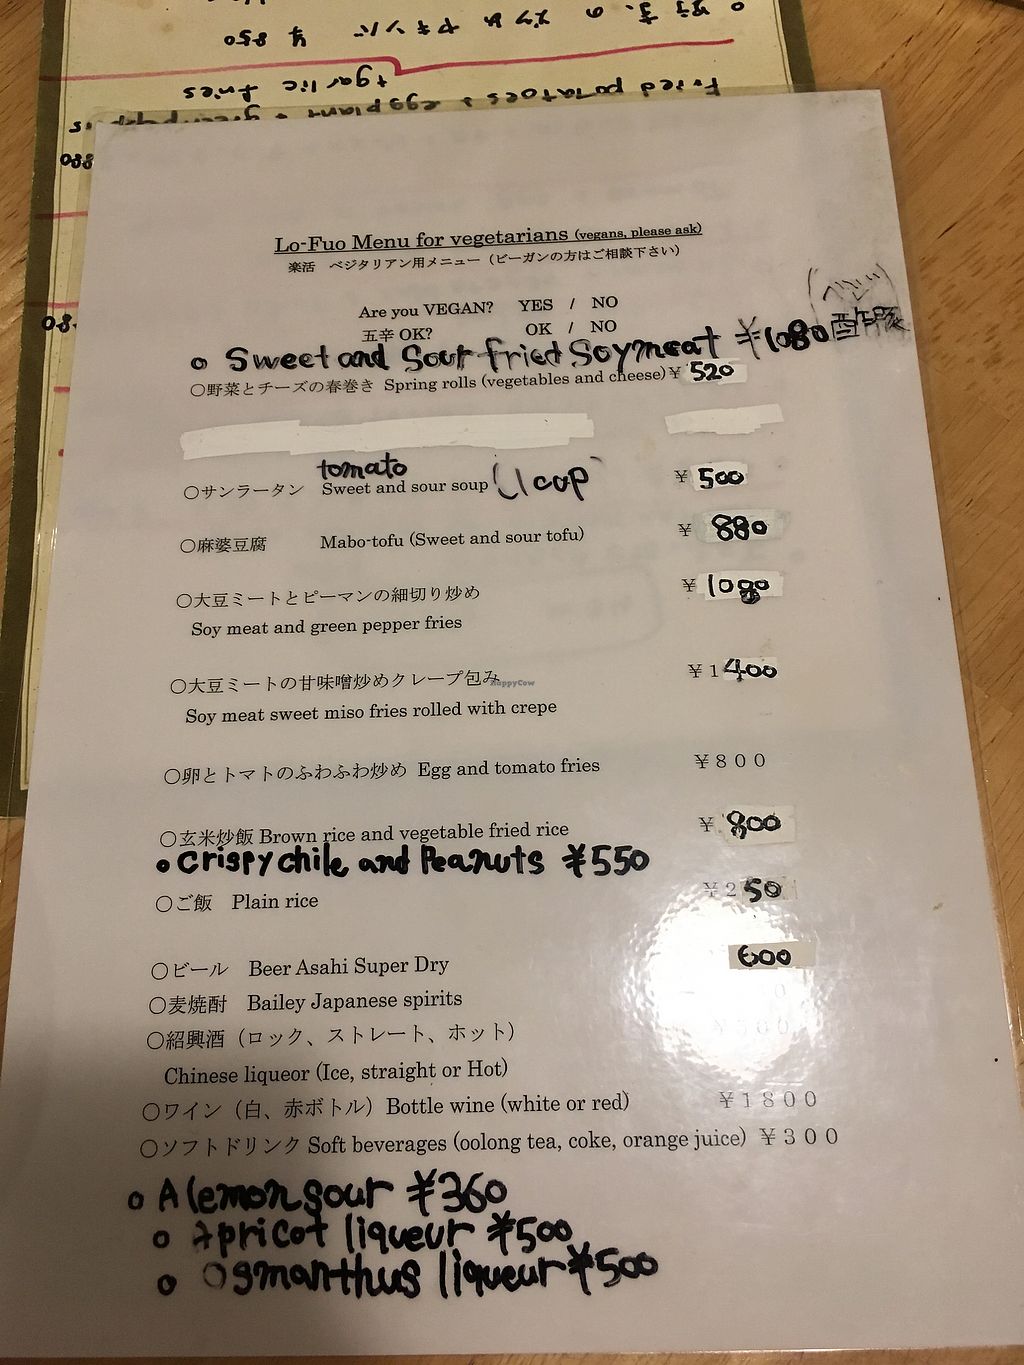 ○ 野菜のアツみヤキソバ ¥850
+garlic fries
Fried potatoes & eggplant & greenpeppers
Lo-Fuo Menu for vegetarians (vegans, please ask)
楽活 ベジタリアン用メニュー（ビーガンの方はご相談下さい）
Are you VEGAN? YES / NO
五辛 OK? OK / NO
○ Sweet and Sour fried Soymeat ¥1080 酢豚
○野菜とチーズの春巻き Spring rolls (vegetables and cheese) ¥ 520
tomato
○サンラータン Sweet and sour soup (1 cup) ¥ 500
○麻婆豆腐 Mabo-tofu (Sweet and sour tofu) ¥ 880
○大豆ミートとピーマンの細切り炒め ¥ 1080
Soy meat and green pepper fries
○大豆ミートの甘味噌炒めクレープ包み ¥1400
HappyCow
Soy meat sweet miso fries rolled with crepe
○卵とトマトのふわふわ炒め Egg and tomato fries ¥800
○玄米炒飯 Brown rice and vegetable fried rice ¥ 800
• Crispy chile and Peanuts ¥550
○ご飯 Plain rice ¥250
○ビール Beer Asahi Super Dry 600
○麦焼酎 Bailey Japanese spirits
○紹興酒（ロック、ストレート、ホット） ¥500
Chinese liqueur (Ice, straight or Hot)
○ワイン（白、赤ボトル）Bottle wine (white or red) ¥1800
○ソフトドリンク Soft beverages (oolong tea, coke, orange juice) ¥300
○ A lemon sour ¥360
○ Apricot liqueur ¥500
○ Osmanthus liqueur ¥500